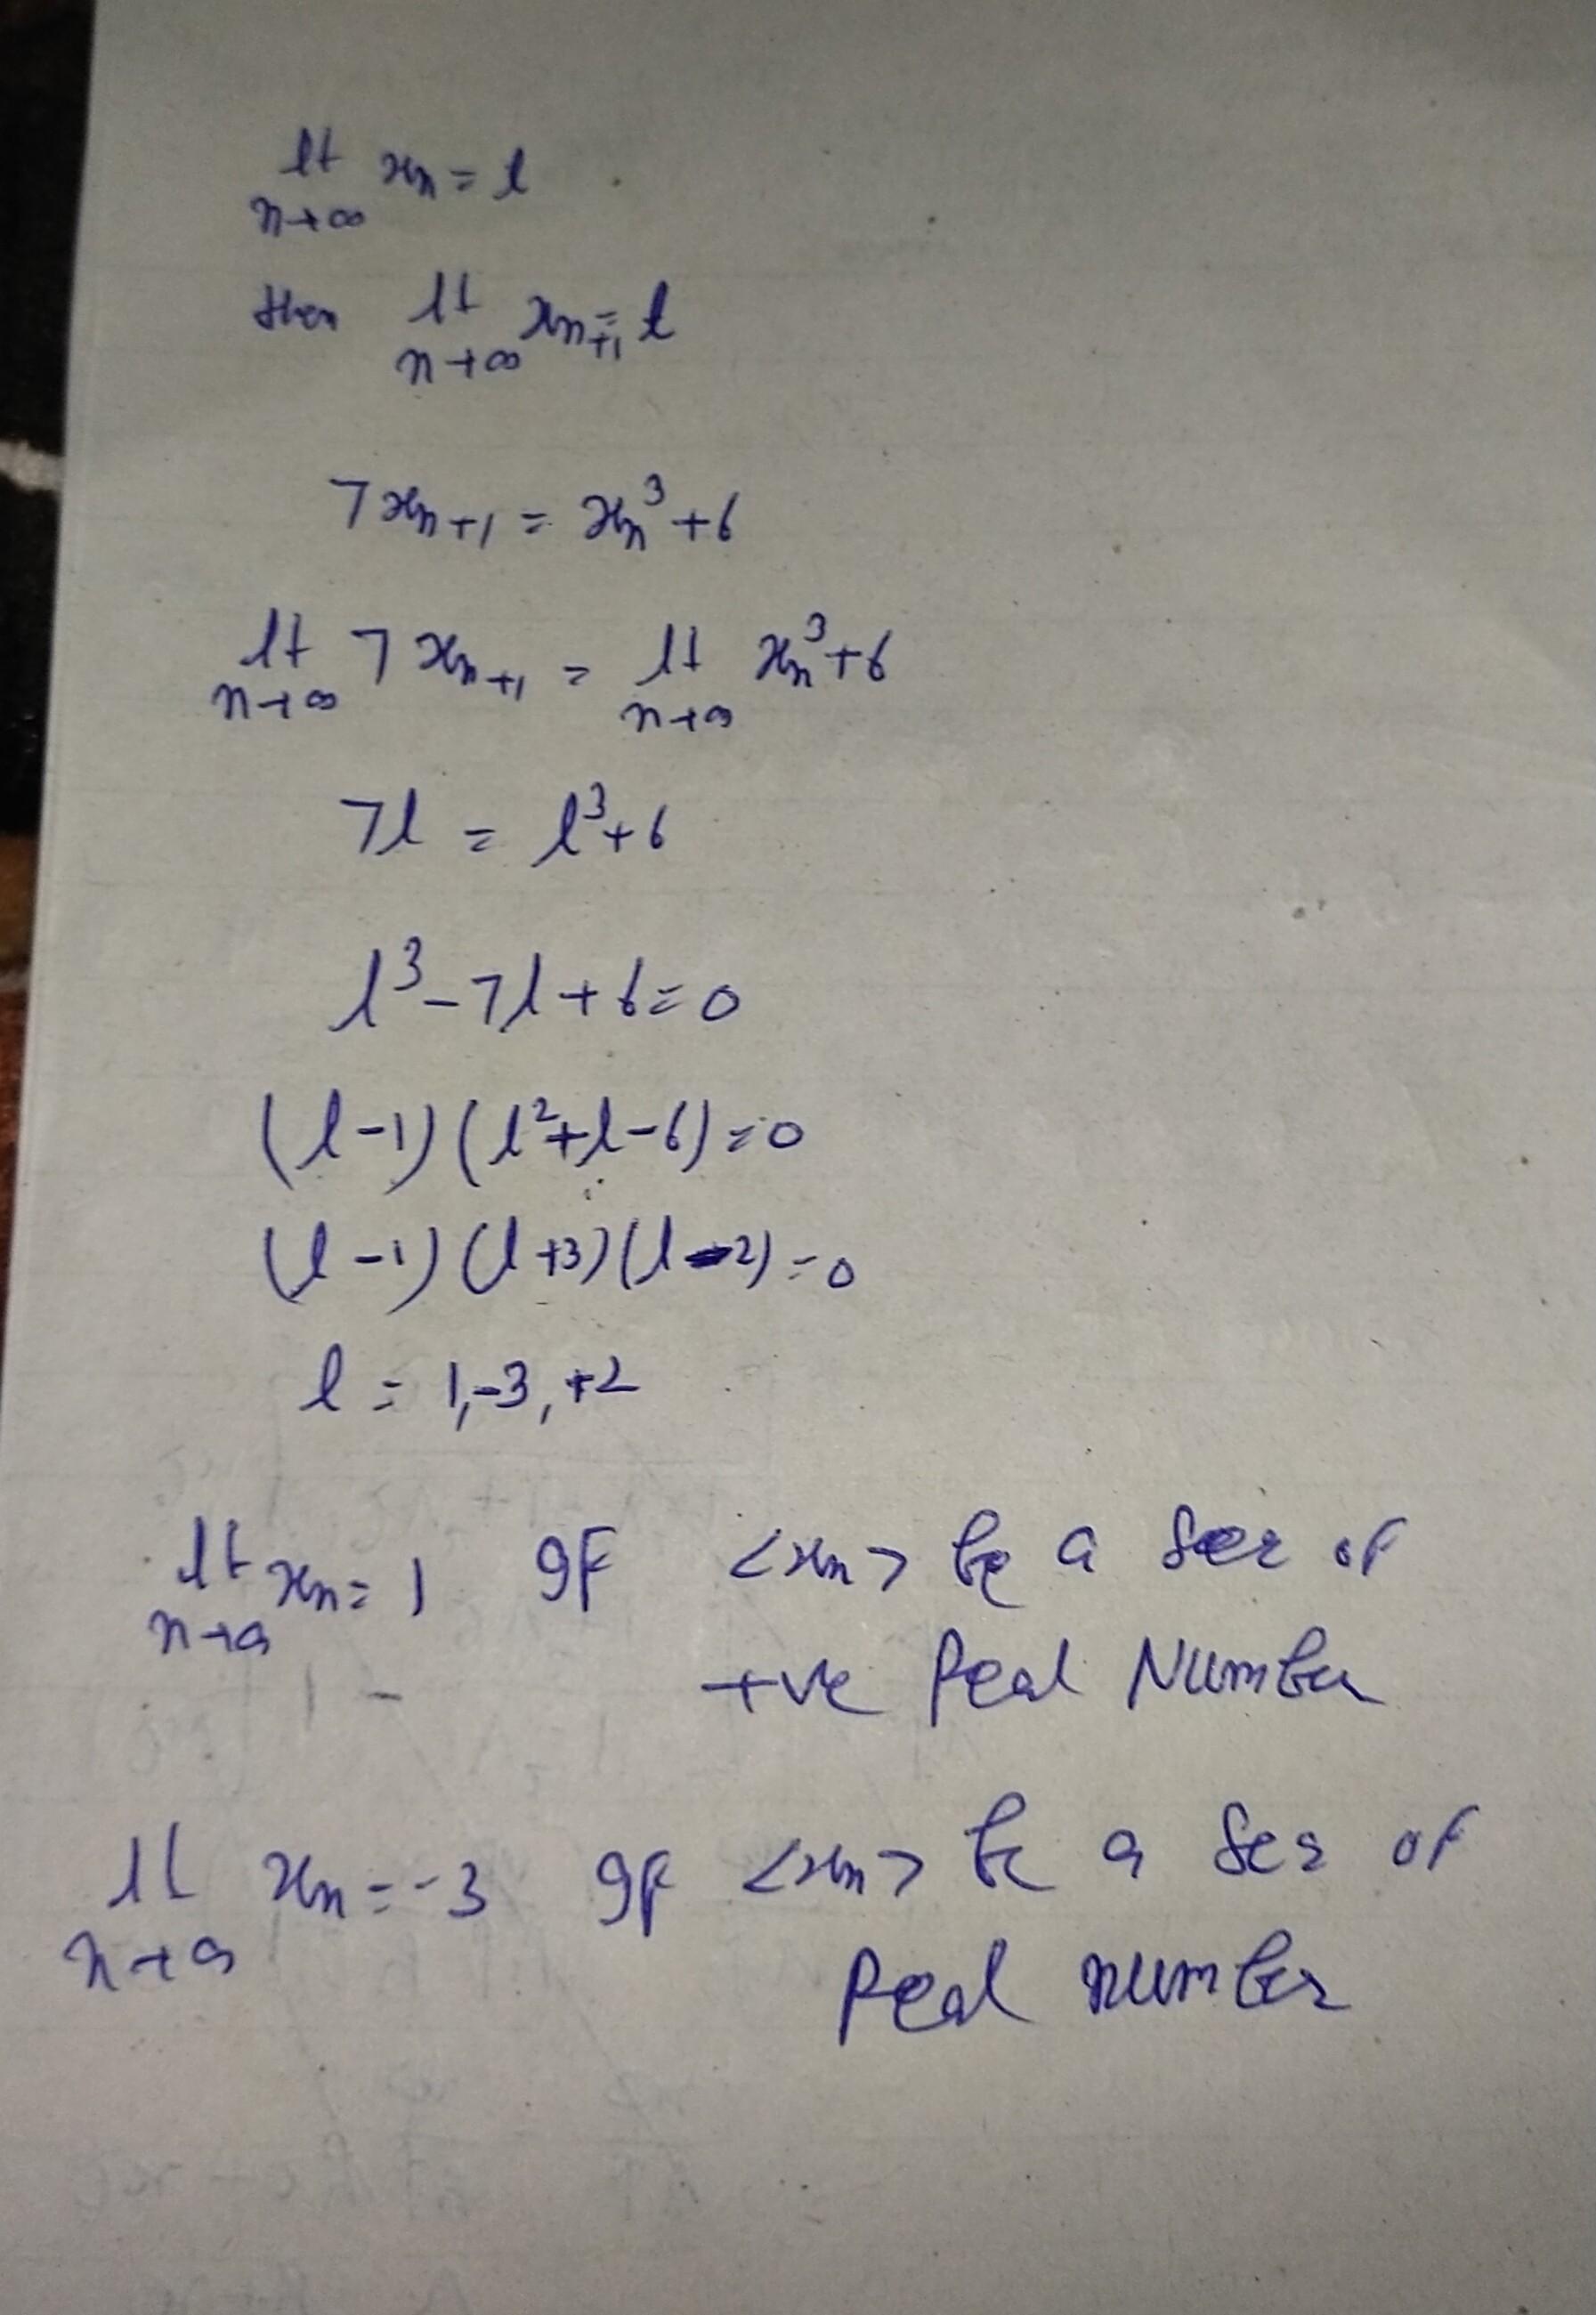 lt xn = l
n→∞
then lt xn+1 = l
n→∞
7xn+1 = xn³+6
lt 7xn+1 = lt xn³+6
n→∞ n→∞
7l = l³+6
l³-7l+6=0
(l-1)(l²+l-6)=0
(l-1)(l+3)(l-2)=0
l = 1,-3,+2
lt xn = 1 If <xn> be a Seq of
n→∞
+ve Real Number
lt xn = -3 If <xn> be a Seq of
n→∞
Real number